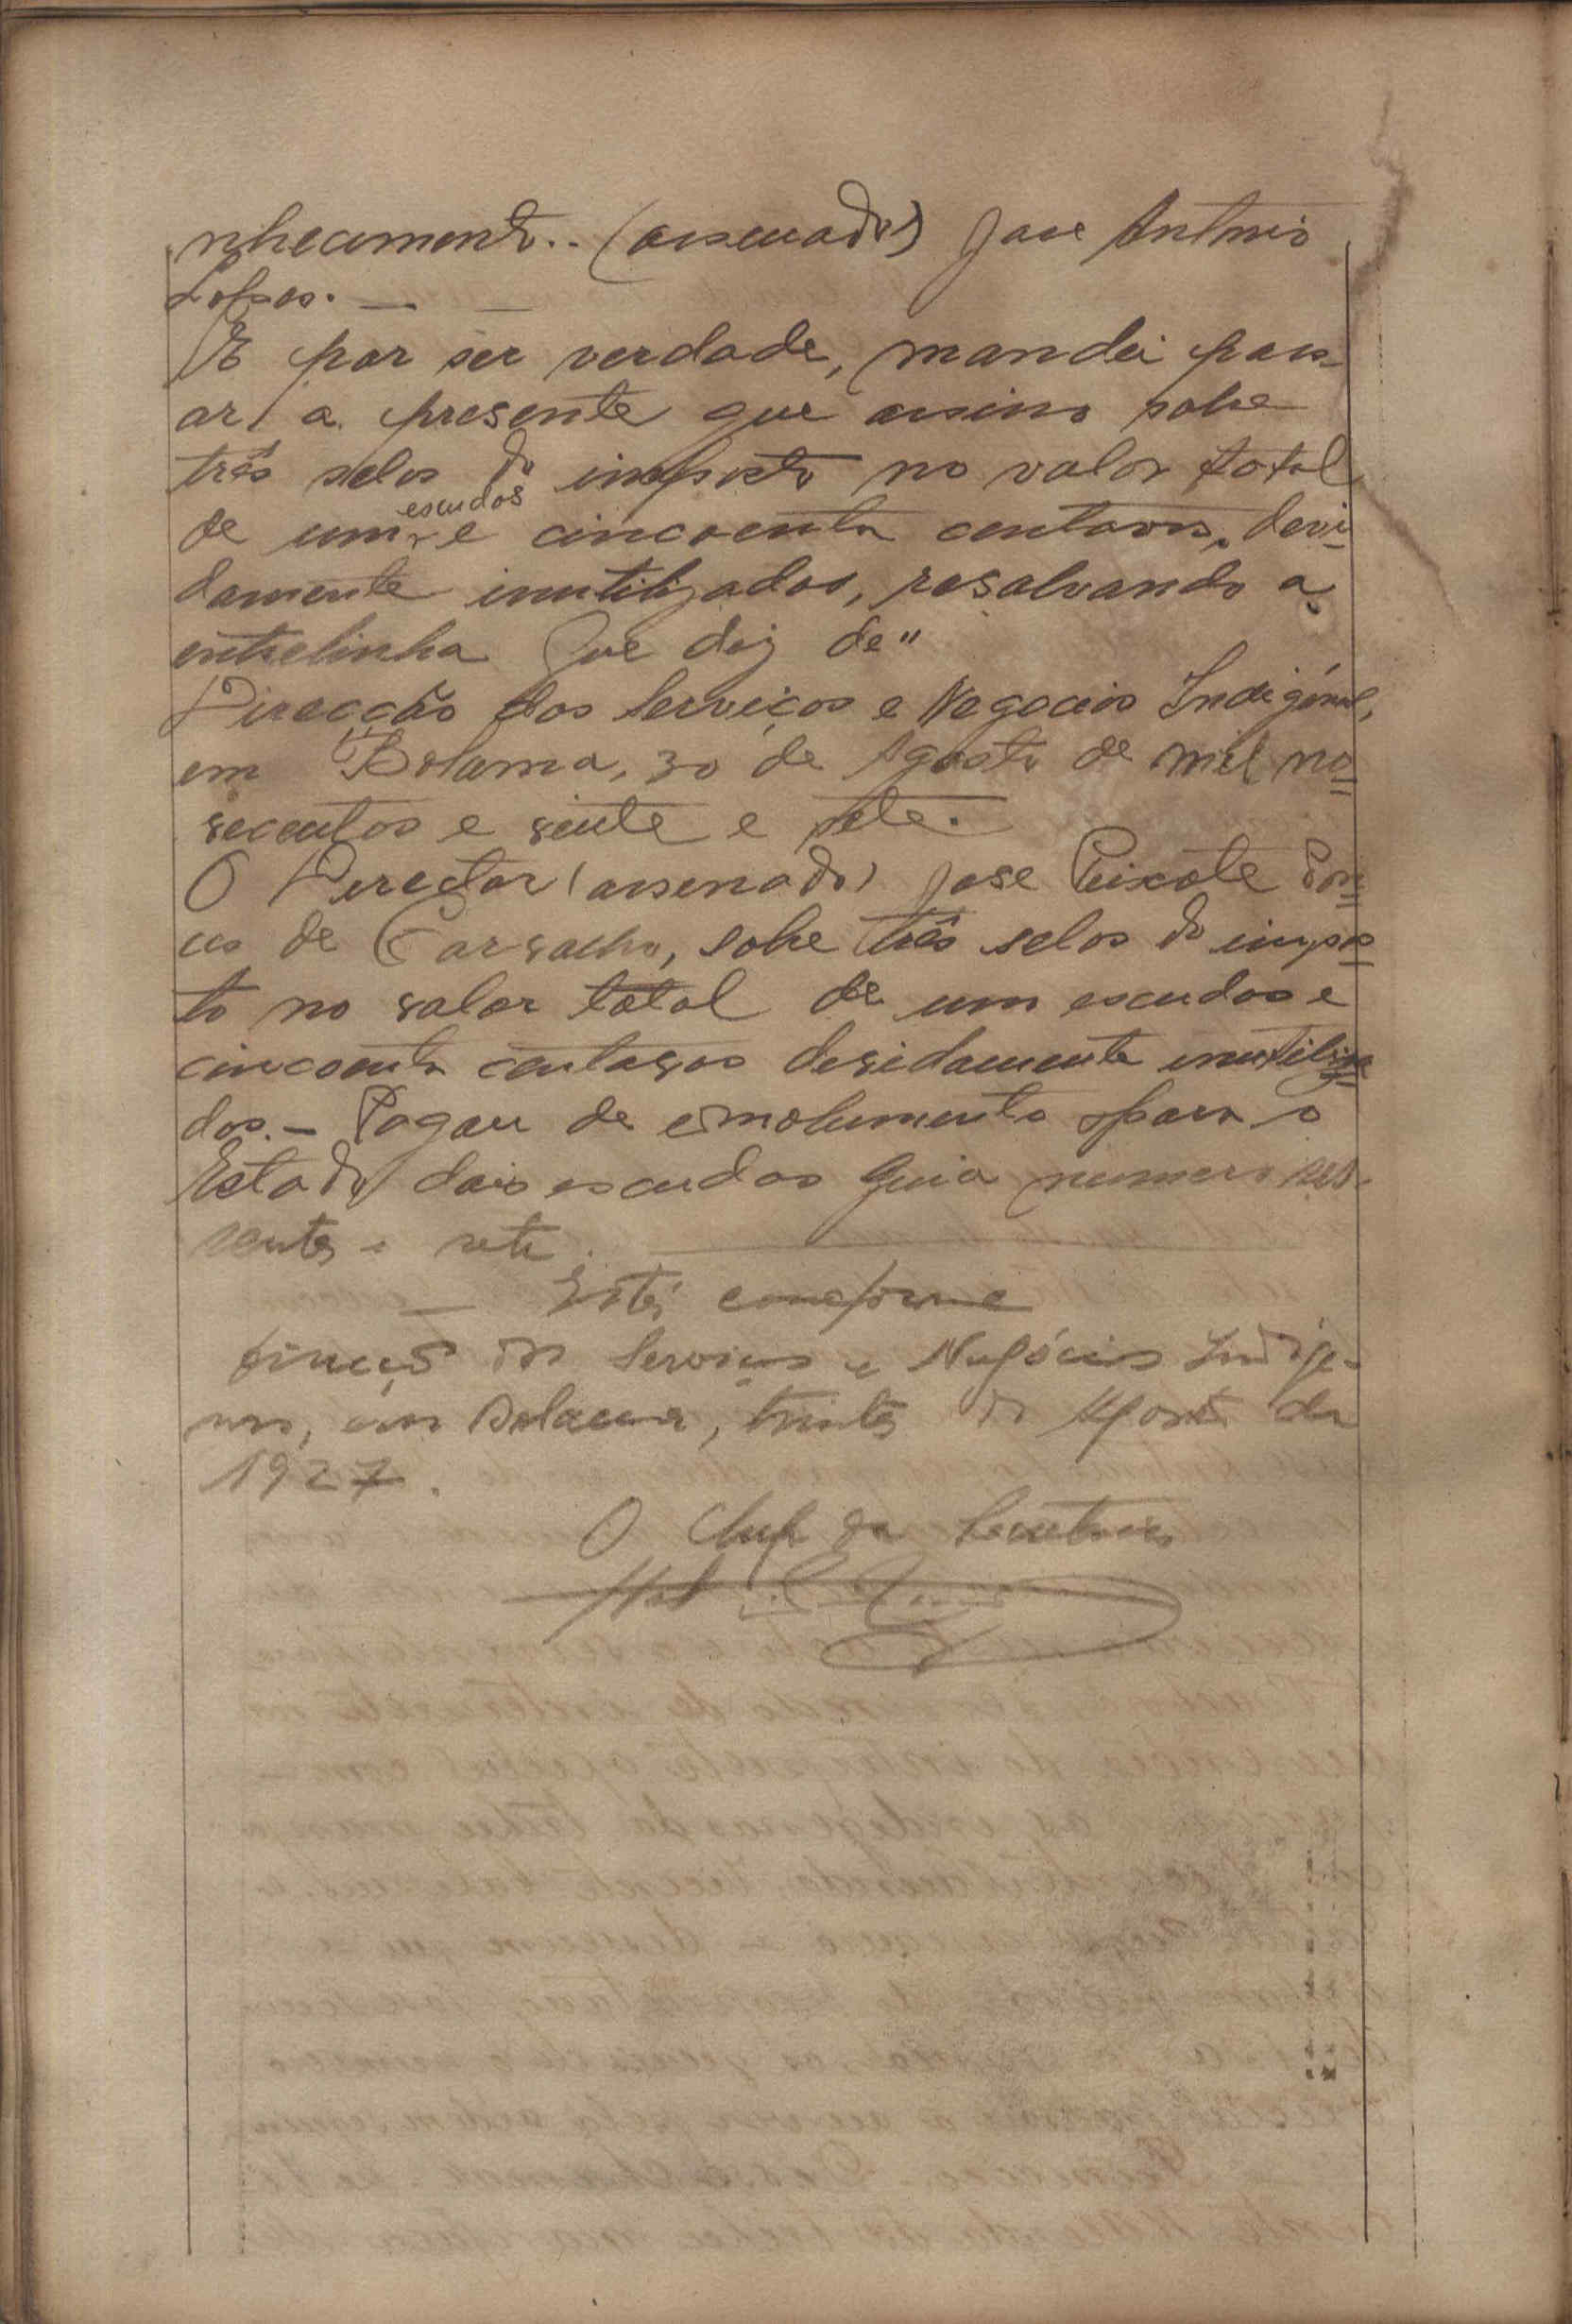 nhecimento.. (assinado) José António
Lopes. —
E por ser verdade, mandei pas-
ar a presente que assino sobre
três selos do imposto no valor total
de um escudos e cincoenta centavos, devi-
damente inutilizados, resalvando a
entrelinha que diz de"
Direcção dos Serviços e Negocios Indigénas,
em Bolama, 30 de Agosto de mil no=
vecentos e vinte e sete.
O Director (assinado) José Peixoto
de Carvalho, sobre três selos do impos=
to no valor total de um escudos e
cincoenta centavos devidamente inutiliza=
dos. — Pagou de emolumento para o
Estado dois escudos Guia numero ses-
senta e sete.
— Está conforme
Direcção dos Serviços e Negócios Indige-
nas, em Bolama, trinta de Agosto de
1927.
O Chefe da Secretaria